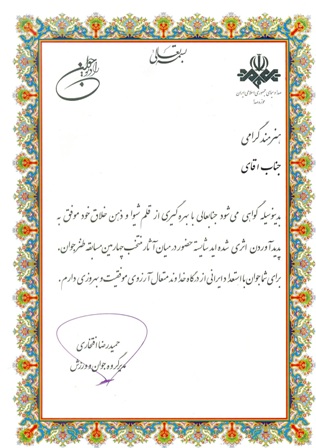 بسمه تعالی
رادیو جوان
صدا و سیمای جمهوری اسلامی ایران
حوزه صدا
هنرمند گرامی
جناب آقای
بدینوسیله گواهی می شود جنابعالی با بهره گیری از قلم شیوا و ذهن خلاق خود موفق به
پدید آوردن اثری شده اید شایسته حضور در میان آثار منتخب چهارمین مسابقه طنز جوان.
برای شما جوان با استعداد ایرانی از درگاه خداوند متعال آرزوی موفقیت و سروری دارم.
حمید رضا افتخاری
مدیر گروه جوان و ورزش